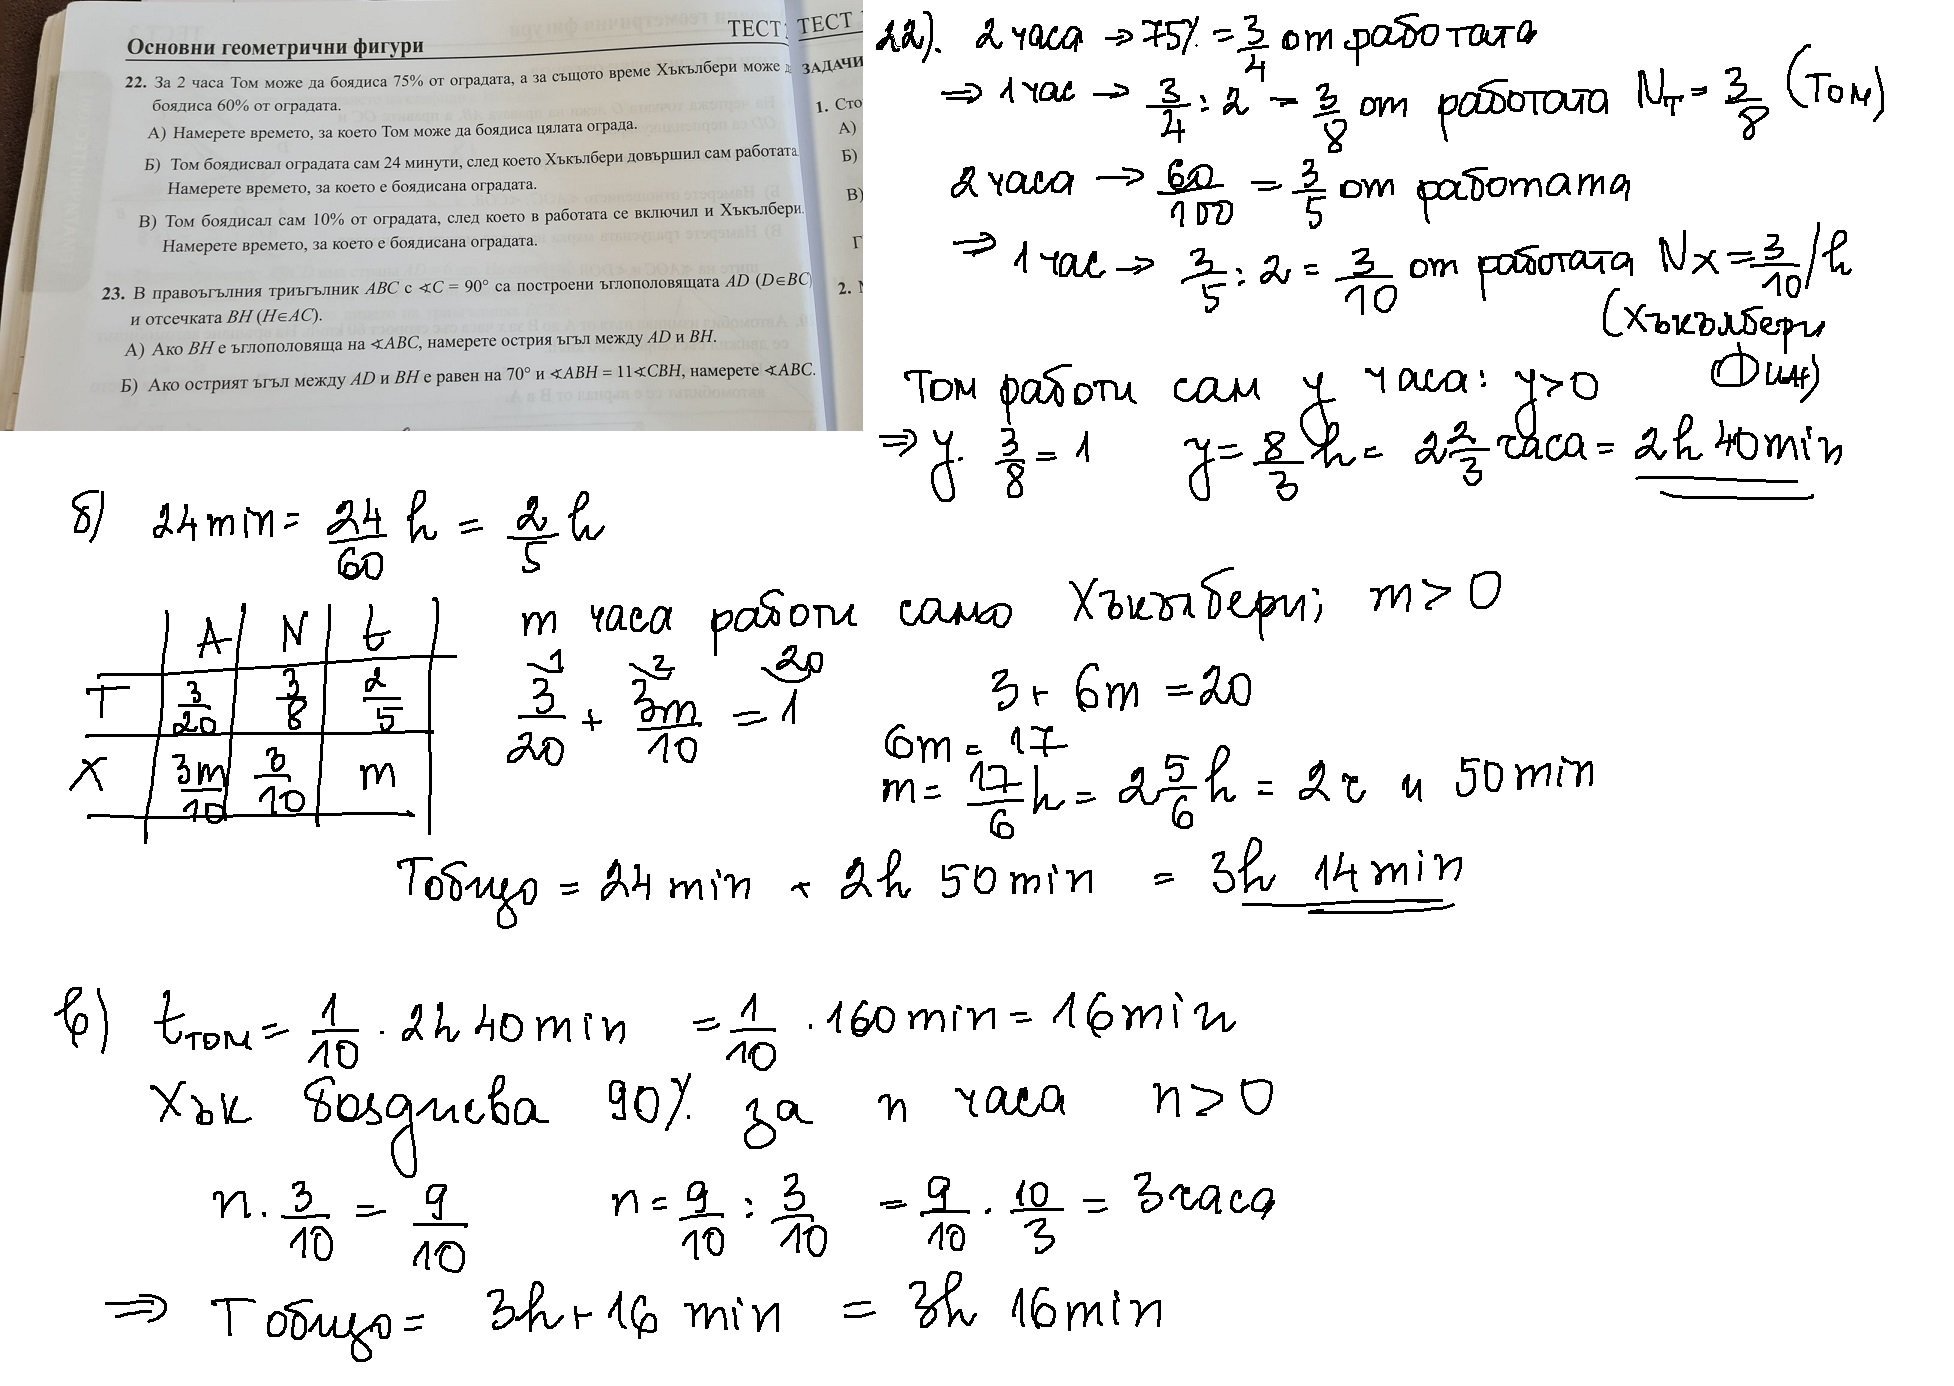 Основни геометрични фигури
ТЕСТ
ТЕСТ
22. За 2 часа Том може да боядиса 75% от оградата, а за същото време Хъкълбери може
боядиса 60% от оградата.
А) Намерете времето, за което Том може да боядиса цялата ограда.
Б) Том боядисвал оградата сам 24 минути, след което Хъкълбери довършил сам работата
Намерете времето, за което е боядисана оградата.
В) Том боядисал сам 10% от оградата, след което в работата се включил и Хъкълбери.
Намерете времето, за което е боядисана оградата.
23. В правоъгълния триъгълник ABC с ∢C = 90° са построени ъглополовящата AD (D∈BC)
и отсечката BH (H∈AC).
А) Ако BH е ъглополовяща на ∢ABC, намерете острия ъгъл между AD и BH.
Б) Ако острият ъгъл между AD и BH е равен на 70° и ∢ABH = 11∢CBH, намерете ∢ABC.
ЗАДАЧИ
1. Сто
А)
Б)
В)
Г
2.
22). 2 часа → 75% = 3/4 от работата
⇒ 1 час → 3/4 : 2 = 3/8 от работата Nт = 3/8 (Том)
2 часа → 60/100 = 3/5 от работата
⇒ 1 час → 3/5 : 2 = 3/10 от работата Nx = 3/10 /h
(Хъкълбери
Фин)
Том работи сам y часа: y>0
⇒ y. 3/8 = 1 y = 8/3 h = 2 2/3 часа = 2h 40min
б) 24min = 24/60 h = 2/5 h
A N t
Т 3/20 3/8 2/5
Х 3m/10 3/10 m
m часа работи само Хъкълбери; m > 0
3/20 + 3m/10 = 1
1 2 20
3 + 6m = 20
6m = 17
m = 17/6 h = 2 5/6 h = 2ч и 50min
Tобщо = 24min + 2h 50min = 3h 14min
в) tтом = 1/10 . 2h 40min = 1/10 . 160min = 16min
Хък боядисва 90% за n часа n > 0
n . 3/10 = 9/10 n = 9/10 : 3/10 = 9/10 . 10/3 = 3 часа
⇒ Tобщо = 3h + 16 min = 3h 16min